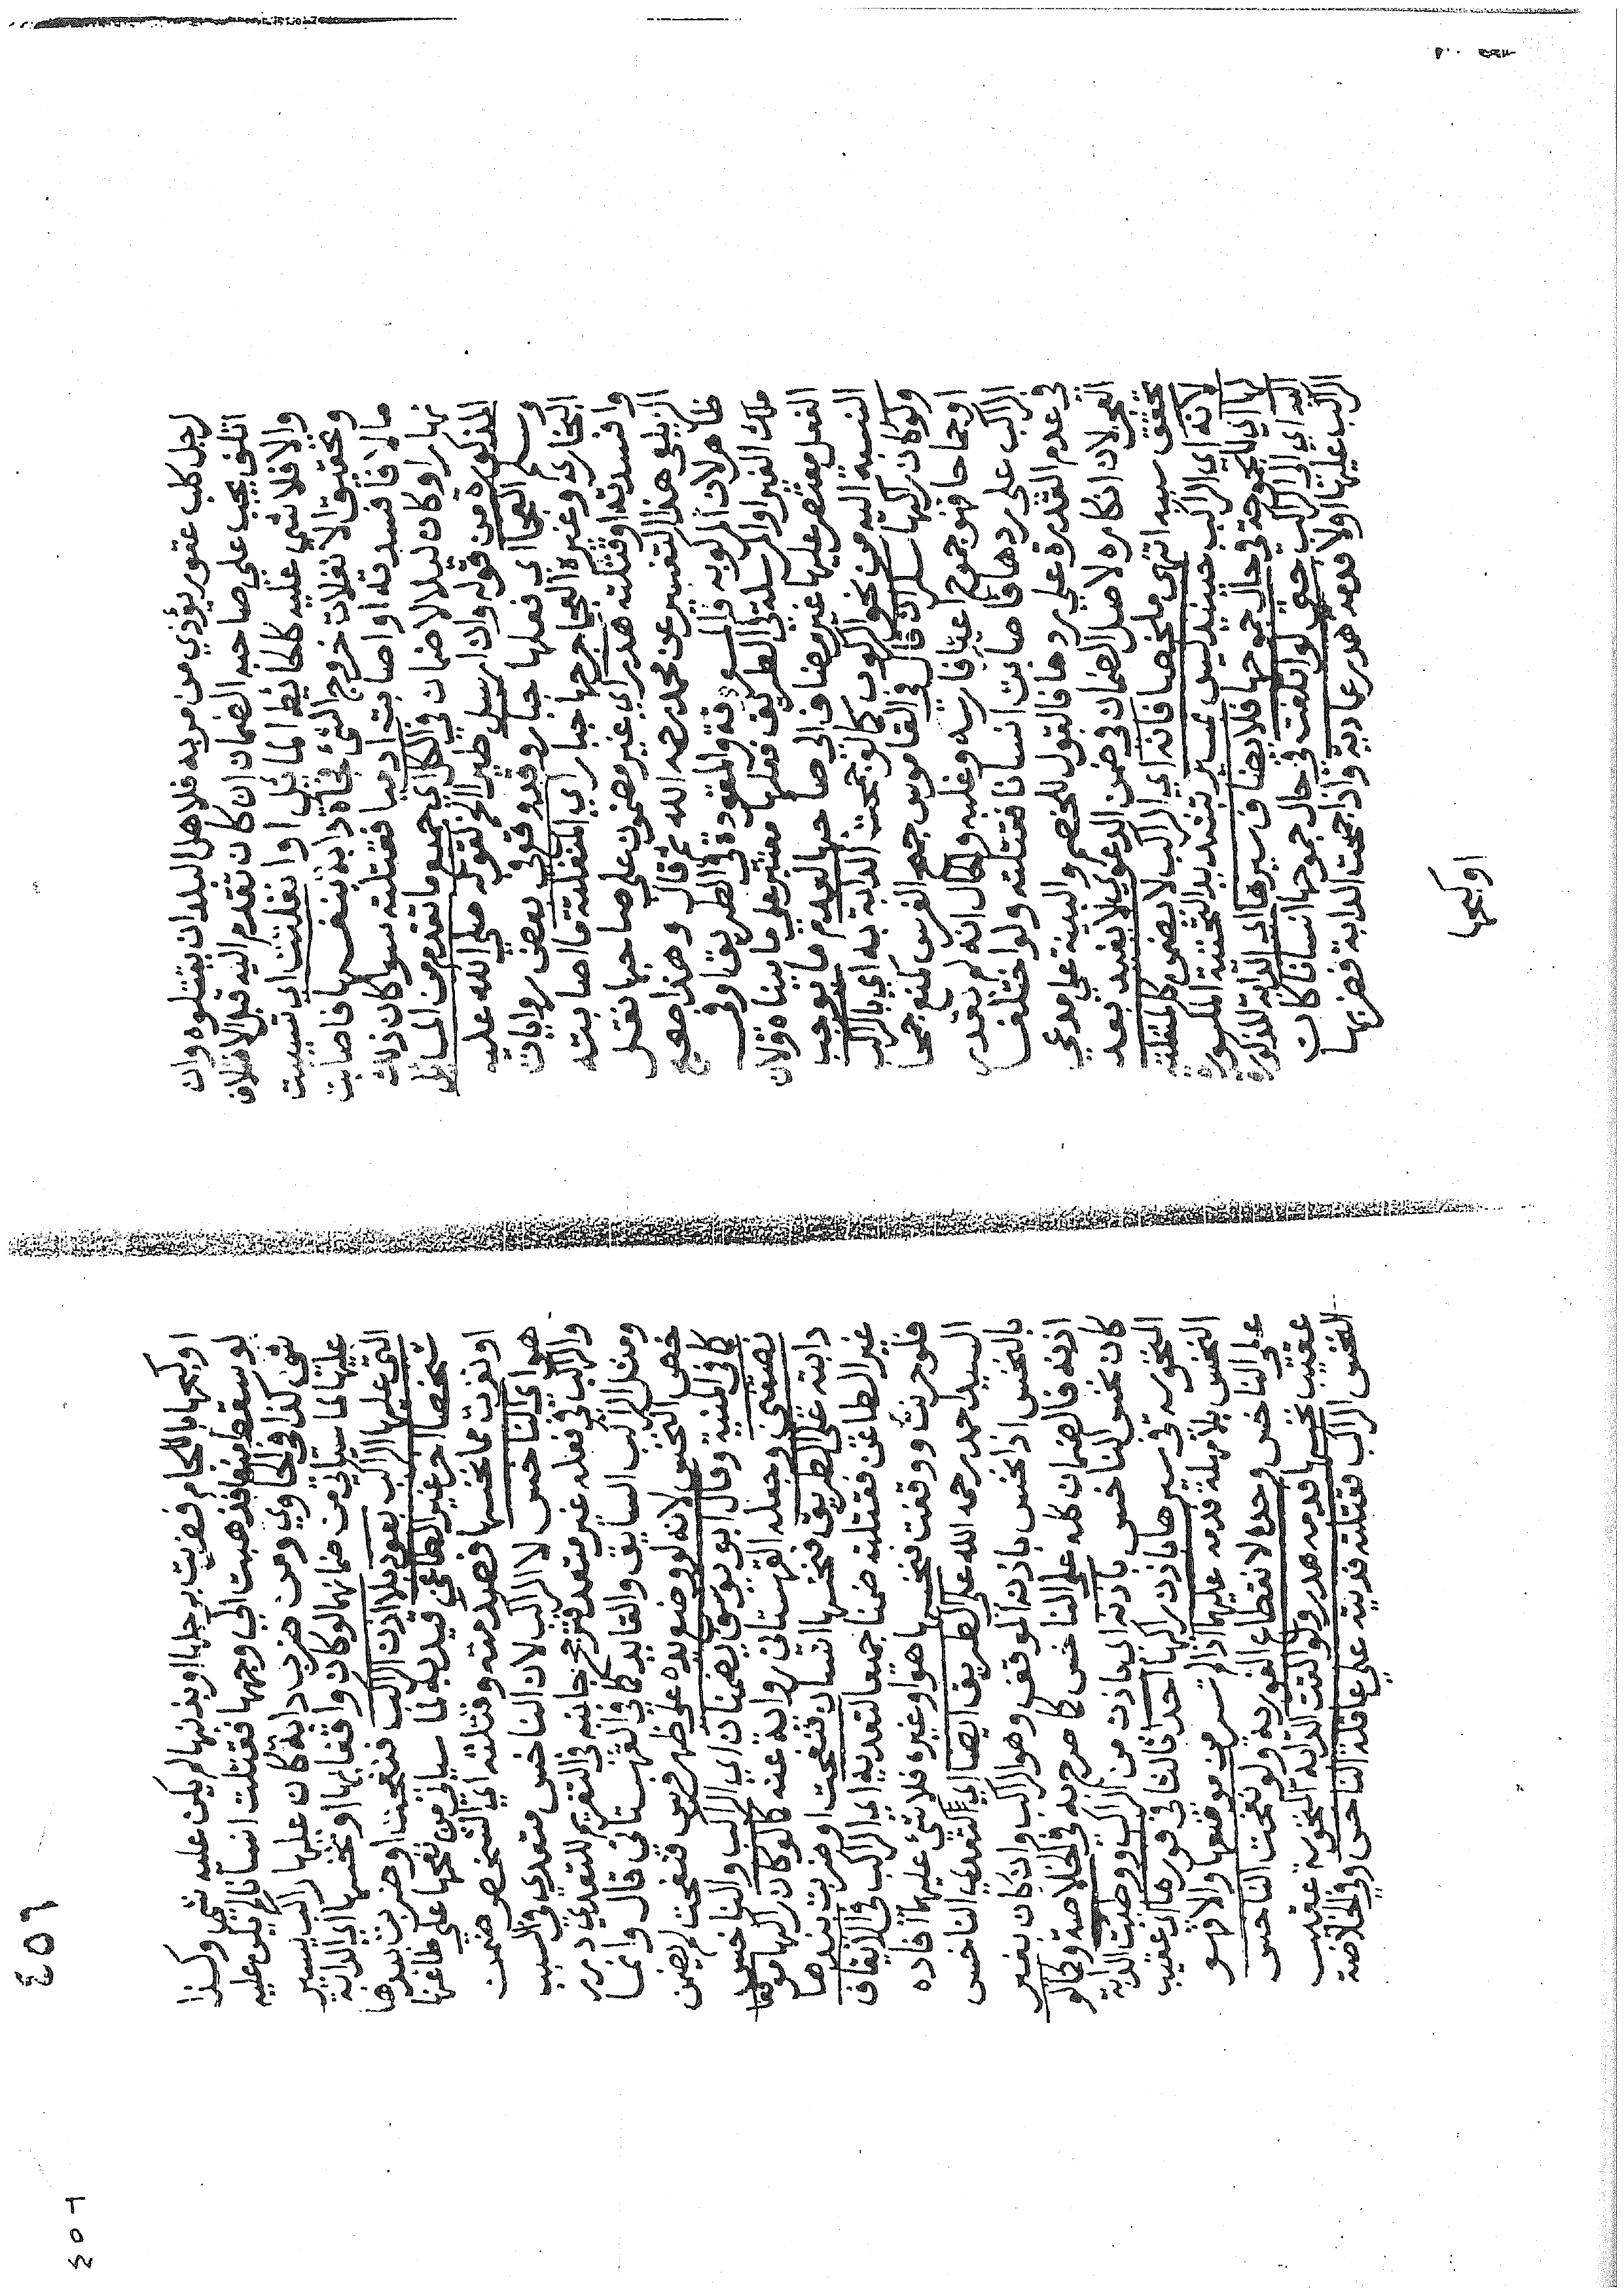 رجل كلب عقور يؤذي من مر به فلاهل البلد ان يقتلوه وان
اتلف يجب على صاحبه الضمان ان كان تقدم اليه قبل الاتلاف
والا فلا شي عليه كالحائط المائل او انفلتت اي تسيبت
وتحقيق الانفلات خروج الشئ فجأة دابة بنفسها فاصابت
مالا فافسدته او اصابت ادميا فقتلته سوا كان ذلك
نهارا وكان ليلا لا ضمان في الكل اي جميع ما تقدم من المسائل
المذكورة من قوله وان ارسل طيرا الخ لقوله صلى الله عليه
وسلم العجما اي فعلها جبار وقد وقع في بعض روايات
البخاري وغيره العجما جرحها جبار اي المنفلتة ما اصابته
وافسدته او قتلته هدر اي غير مضمون على صاحبها نقل
الزيلعي هذا التفسير عن محمد رحمه الله ثم قال وهذا صحيح
ظاهر لان المركوبة والمسوقة والمقودة في الطريق او في
ملك الغير او المرسلة في الطريق فعلها معتبر على ما بيناه ولان
الفعل مقتصر عليها غير مضاف الى صاحبها لعدم ما يوجب
النسبة اليه من نحو الركوب كما لو جمحت الدابة به اي بالراكب
ولو كان راكبها سكران قال في القاموس جمح الفرس كمنع جمحا
او جماحا فهو جموح اعتز فارسه وغلبه والحال انه لم يقدر
الراكب على ردها فاصابت انسانا فقتلته ولو اختلف
في عدم القدرة على ردها فالقول للخصم والبينة على مدعي
العجز لان انكاره لاصل الضمان في ضمن الدعوى لا يفيد بعد
تحقق سببه انتهى ملخصا فانه اي الراكب لا يضمن كالمنفلتة
لانه اي الراكب حينئذ ليس بمسير بتشديد التحتية المكسورة
لها اي للجموحة في حال جموحها فلا يضاف سيرها اي الدابة المذكورة
اليه اي الى الراكب حتى لو اتلفت في حال جموحها انسانا كان
الراكب عليها اولا فدمه هدر عادية واذا جمحت الدابة فضربها
او كبحها
٤٥٦
او كبحها باللجام فضربت برجلها او بذنبها لم يكن عليه شي وكذا
لو سقط منها فذهبت الى وجهها فقتلت انسانا لم يكن عليه
شي كذا في الحاوي ومن ضرب دابة كان عليها راكب يسير
عليها لما سيأتي من ضمانهما لو كان واقفا بها او نخسها اي الدابة
التي عليها الراكب بعود بلا اذن الراكب فنفحت او ضربت بيدها
شخصا اخر غير الطاعن قيد به لما سيأتي من نفحها على طاعنها
او نفرت مما نخسها فصدمته وقتلته اي الشخص ضمن
هو اي الناخس لا الراكب لان الناخس متعدي في التسبب
والراكب في فعله غير متعد فترجح جانبه في التغريم للتعدي درر
ومثل الراكب السايق والقايد كما في القهستاني قال وانما
خص النخس لانه لو وضع يده على ظهر فرس فنفحت لم يضمن
كما في المنية وقال ابو يوسف يضمنان اي الراكب والناخس
نصفين وجعله القهستاني رواية عنه كما لو كان راكبها موقفا
دابته على الطريق فنخسها انسان فنفحت او ضربت بيدها
غير الطاعن فقتلته ضمنا جميعا لتعديه اي الراكب في الايقاف
فلو حرنت ووقفت فنخسها هو او غيره فلا شئ عليهما افاده
السيد احمد رحمه الله على الطريق ايضا اي كتعدي الناخس
بالنخس اذا نخس باذن الموقف وهو الراكب وان كان بغير
اذنه فالضمان كله على الناخس كما صرح به في الخلاصة وكما لو
كان نخس الناخس باذنه اي باذن من الراكب ووطئت الدابة
المنخوسة في سيرها باذن راكبها احدا قالنا في فورها اي عقيب
النخس بلا مهلة فدمه عليهما اذا لم تسر من موقفها والا فهو
على الناخس وحده لانقطاع الفورية ولو نفحت الناخس
عقيب نخسها فدمه هدر ولو القت الدابة المنخوسة عقيب
النخس الراكب فقتلته فديته على عاقلة الناخس وفي الخلاصة